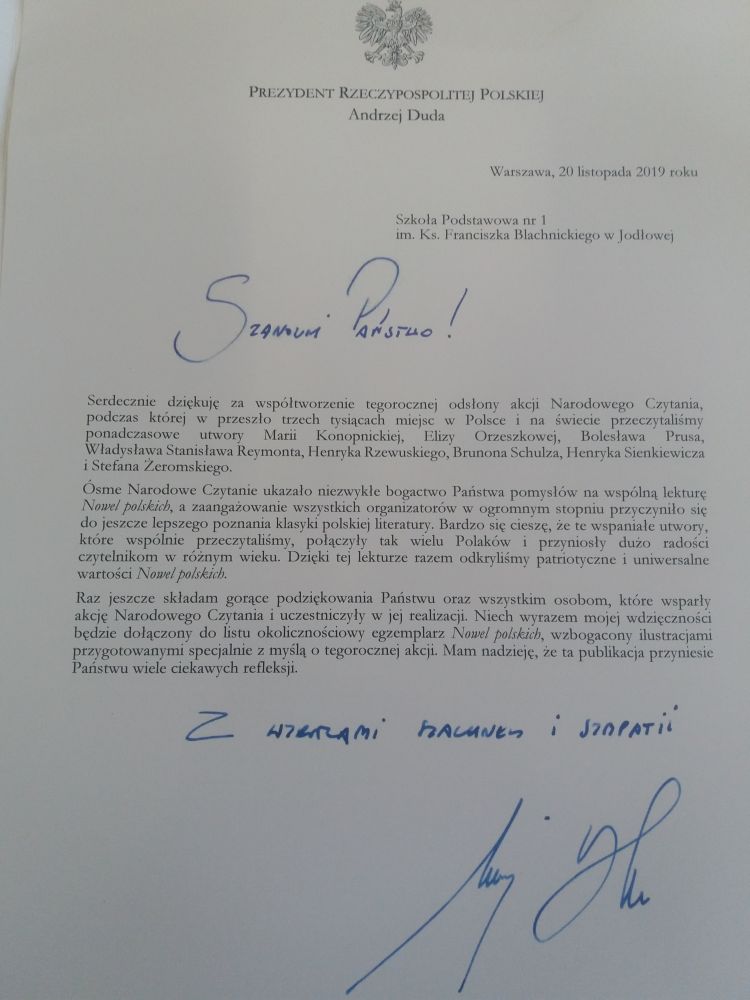 PREZYDENT RZECZYPOSPOLITEJ POLSKIEJ
Andrzej Duda
Warszawa, 20 listopada 2019 roku
Szkoła Podstawowa nr 1
im. Ks. Franciszka Blachnickiego w Jodłowej
SZANOWNI PAŃSTWO!
Serdecznie dziękuję za współtworzenie tegorocznej odsłony akcji Narodowego Czytania,
podczas której w przeszło trzech tysiącach miejsc w Polsce i na świecie przeczytaliśmy
ponadczasowe utwory Marii Konopnickiej, Elizy Orzeszkowej, Bolesława Prusa,
Władysława Stanisława Reymonta, Henryka Rzewuskiego, Brunona Schulza, Henryka Sienkiewicza
i Stefana Żeromskiego.
Ósme Narodowe Czytanie ukazało niezwykłe bogactwo Państwa pomysłów na wspólną lekturę
Nowel polskich, a zaangażowanie wszystkich organizatorów w ogromnym stopniu przyczyniło się
do jeszcze lepszego poznania klasyki polskiej literatury. Bardzo się cieszę, że te wspaniałe utwory,
które wspólnie przeczytaliśmy, połączyły tak wielu Polaków i przyniosły dużo radości
czytelnikom w różnym wieku. Dzięki tej lekturze razem odkryliśmy patriotyczne i uniwersalne
wartości Nowel polskich.
Raz jeszcze składam gorące podziękowania Państwu oraz wszystkim osobom, które wsparły
akcję Narodowego Czytania i uczestniczyły w jej realizacji. Niech wyrazem mojej wdzięczności
będzie dołączony do listu okolicznościowy egzemplarz Nowel polskich, wzbogacony ilustracjami
przygotowanymi specjalnie z myślą o tegorocznej akcji. Mam nadzieję, że ta publikacja przyniesie
Państwu wiele ciekawych refleksji.
Z WYRAZAMI SZACUNKU I SYMPATII